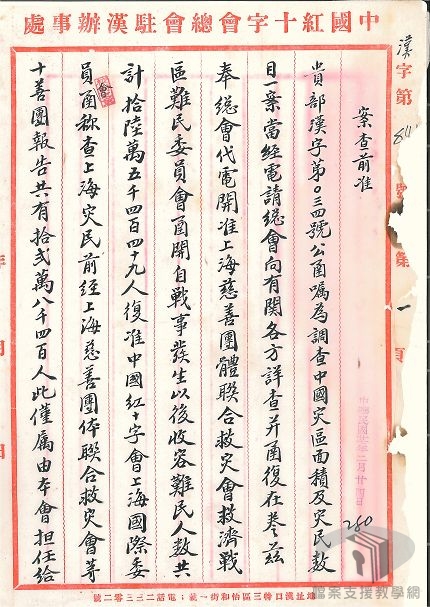 中國紅十字會總會駐漢辦事處
漢字第 號第一頁
案查前准
貴部漢字第○三四號公函囑為調查中國災區面積及災民數
目一案當經電請總會向有関各方詳查并函復在卷茲
奉總會代電開准上海慈善團體聯合救災會救濟戰
區難民委員會函開自戰事發生以後收容難民人數共
計拾陸萬五千四百四十九人復准中國紅十字會上海國際委
員函称查上海災民前經上海慈善團体聯合救災會等
十善團報告共有拾弍萬八千四百人此僅属由本會担任給
中華民國 年二月廿四日
260
址漢口特三區怡和街一號 電話二三三零二號
檔案支援教學網